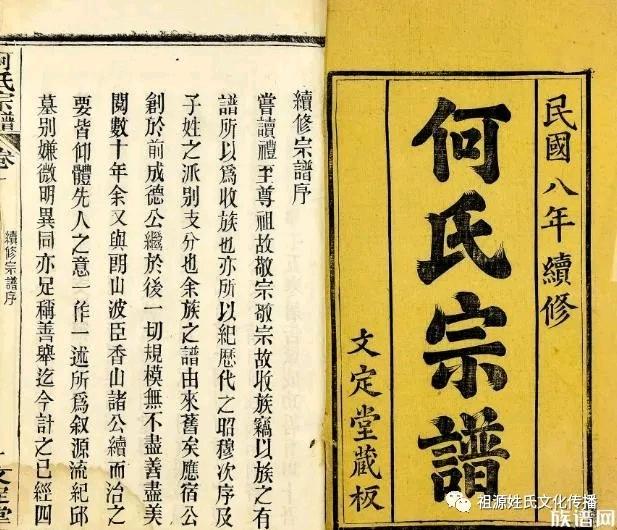 民國八年續修
何氏宗譜
文定堂藏板
續修宗譜序
嘗讀禮至尊祖故敬宗敬宗故收族竊以族之有
譜所以爲收族也亦所以紀歷代之昭穆次序及
子姓之派别支分也余族之譜由來舊矣應宿公
創於前成德公繼於後一切規模無不盡善盡美
閱數十年余又與閉山波臣香山諸公續而治之
要皆仰體先人之意一作一述所爲叙源流紀邱
墓别嫌微明異同亦足稱善舉迄今計之已經四
何氏宗譜
卷
續修宗譜序
文定堂
祖源姓氏文化传播
族谱网